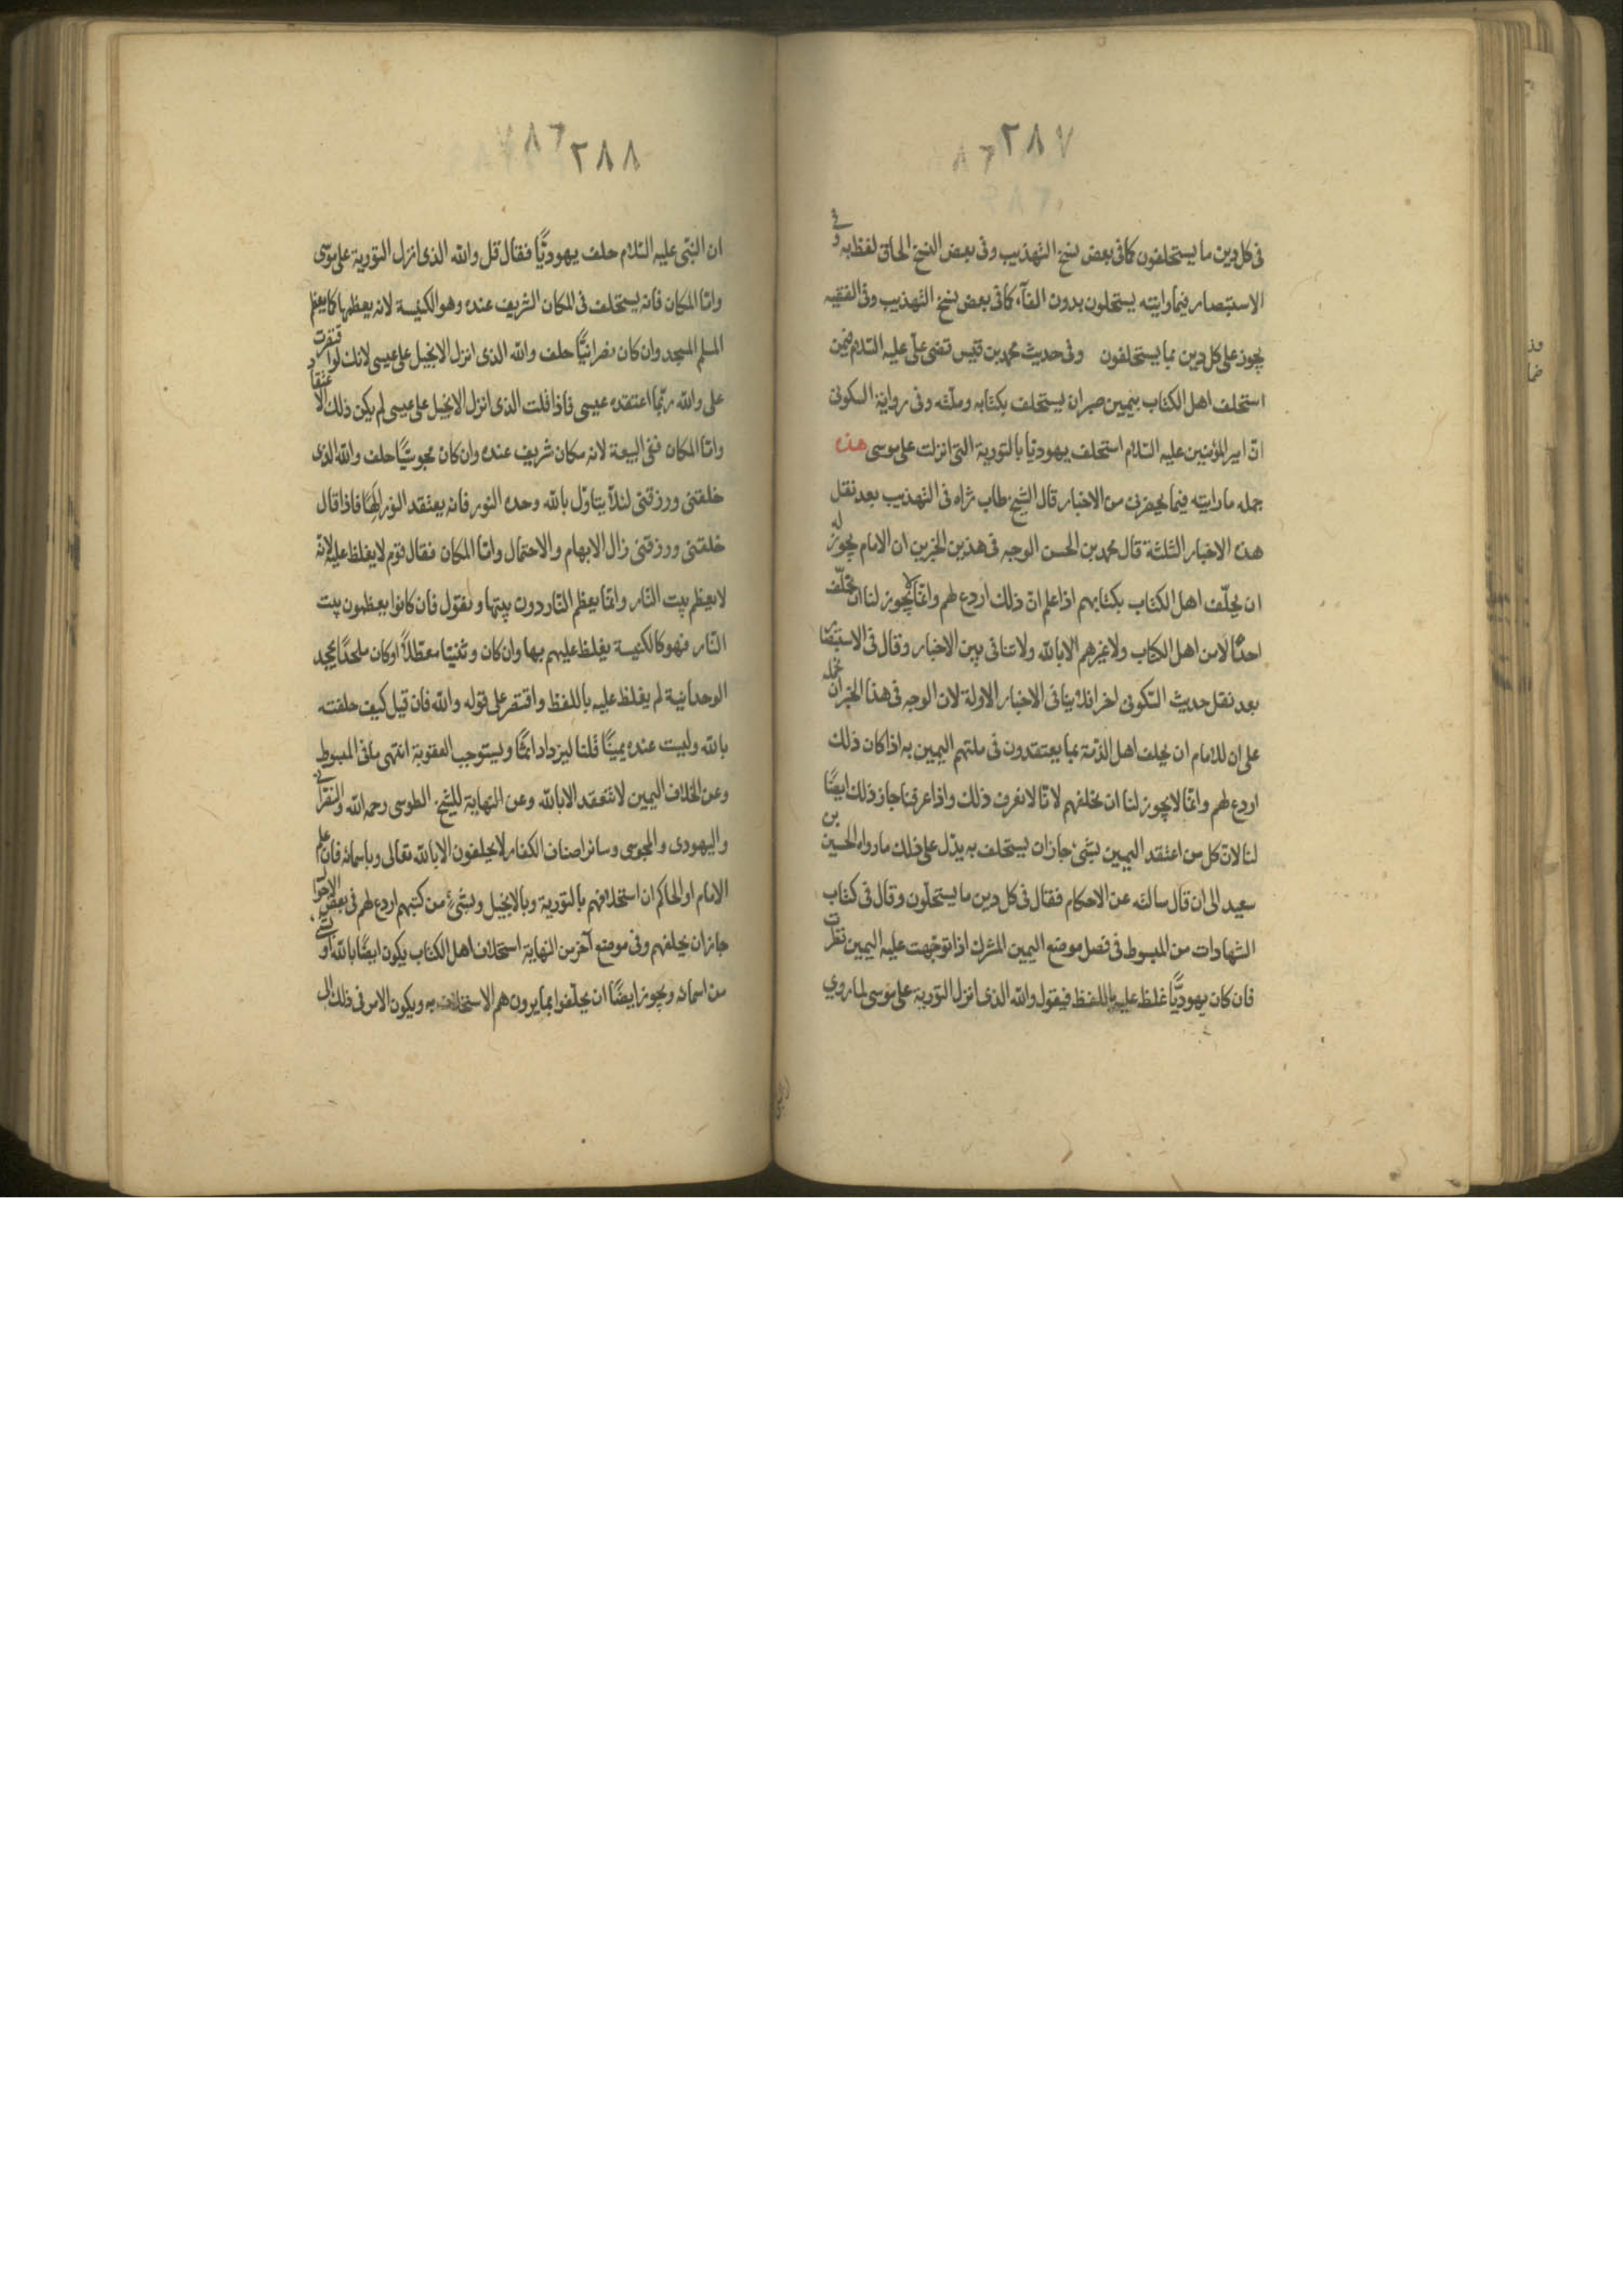 ٢٨٧
فى كل دين ما يستحلفون كما فى بعض نسخ التهذيب وفى بعض النسخ الحاق لفظ به وفى
الاستبصار فيما رايته يستحلون بدون الفآء كما فى بعض نسخ التهذيب وفى الفقيه
يجوز على كل دين بما يستحلفون وفى حديث محمد بن قيس قضى على عليه السلام فيمن
استحلف اهل الكتاب بيمين صبر ان يستحلف بكتابه وملّته وفى رواية السكونى
انّ امير المؤمنين عليه السّلام استحلف يهوديّا بالتّورية التى انزلت على موسى هذه
جمله ما رايته فيما يحضرنى من الاخبار قال الشيخ طاب ثراه فى التهذيب بعد نقل
هذه الاخبار الثلثة قال محمد بن الحسن الوجه فى هذين الخبرين ان الامام يجوز له
ان يحلّف اهل الكتاب بكتابهم اذا علم انّ ذلك اردع لهم وانّما لا يجوز لنا ان نحلّف
احدًا لا من اهل الكتاب ولا غيرهم الا بالله ولا تنافى بين الاخبار وقال فى الاستبصا
بعد نقل حديث السّكونى اخرا فلا ينافى الاخبار الاولة لان الوجه فى هذا الخبر ان نحمله
على ان للامام ان يحلف اهل الذمّة بما يعتقدون فى ملتهم اليمين به اذا كان ذلك
اردع لهم وانّما لا يجوز لنا ان نحلفهم لانّا لا نعرف ذلك واذا عرفنا جاز ذلك ايضًا
لنا لانّ كل من اعتقد اليمين بشئ جاز ان يستحلف به يدّل على ذلك ما رواه الحسين بن
سعيد الى ان قال سالته عن الاحكام فقال فى كل دين ما يستحلّون وقال فى كتاب
الشهادات من المبسوط فى فصل موضع اليمين المشرك اذا توجّهت عليه اليمين نظرت
فان كان يهوديًّا غلظ عليه باللفظ فيقول والله الذى انزل التّورية على موسى لما روي
٢٨٨
ان النبّى عليه السّلام حلف يهوديًّا فقال قل والله الذى انزل التورية على موسى
وامّا المكان فانه يستحلف فى المكان الشريف عنده وهو الكنيسة لانه يعظمها كما يعظم
المسلم المسجد وان كان نصرانيًّا حلف والله الذى انزل الانجيل على عيسى لانك لو اقتصرت
على والله ربّما اعتقده عيسى فاذا قلت الذى انزل الانجيل على عيسى لم يكن ذلك الاعتقاد
وامّا المكان ففى البيعة لانه مكان شريف عنده وان كان مجوسيًّا حلف والله الذى
خلقنى ورزقنى لئلّا يتاوّل بالله وحده النور فانه يعتقد النور الٰهًا فاذا قال
خلقنى ورزقنى زال الابهام والاحتمال وامّا المكان فقال قوم لا يغلظ عليه لانّه
لا يعظم بيت النّار وانّما يعظم النّار دون بيتها ونقول فان كانوا يعظمون بيت
النّار فهو كالكنيسة يغلظ عليهم بها وان كان وثنيّا معطّلًا او كان ملحدًا يجحد
الوحدانية لم يغلظ عليه باللفظ واقتصر على قوله والله فان قيل كيف حلفته
بالله وليست عنده يمينًا قلنا ليزداد اثمًا ويستوجب العقوبة انتهى ما فى المبسوط
وعن الخلاف اليمين لا تنعقد الا بالله وعن النهاية للشيخ الطوسى رحمه الله والنصرانى
واليهودى والمجوسى وسائر اصناف الكفار لا يحلفون الا بالله تعالى وباسمائه فان علم
الامام او الحاكم ان استحلافهم بالتورية وبالانجيل وبشئ من كتبهم اردع لهم فى بعض الاحوال
جاز ان يحلفهم وفى موضع آخر من النهاية استحلاف اهل الكتاب يكون ايضًا بالله او بشئ
من اسمائه ويجوز ايضًا ان يحلّفوا بما يرون هم الاستحلاف به ويكون الامر فى ذلك الى